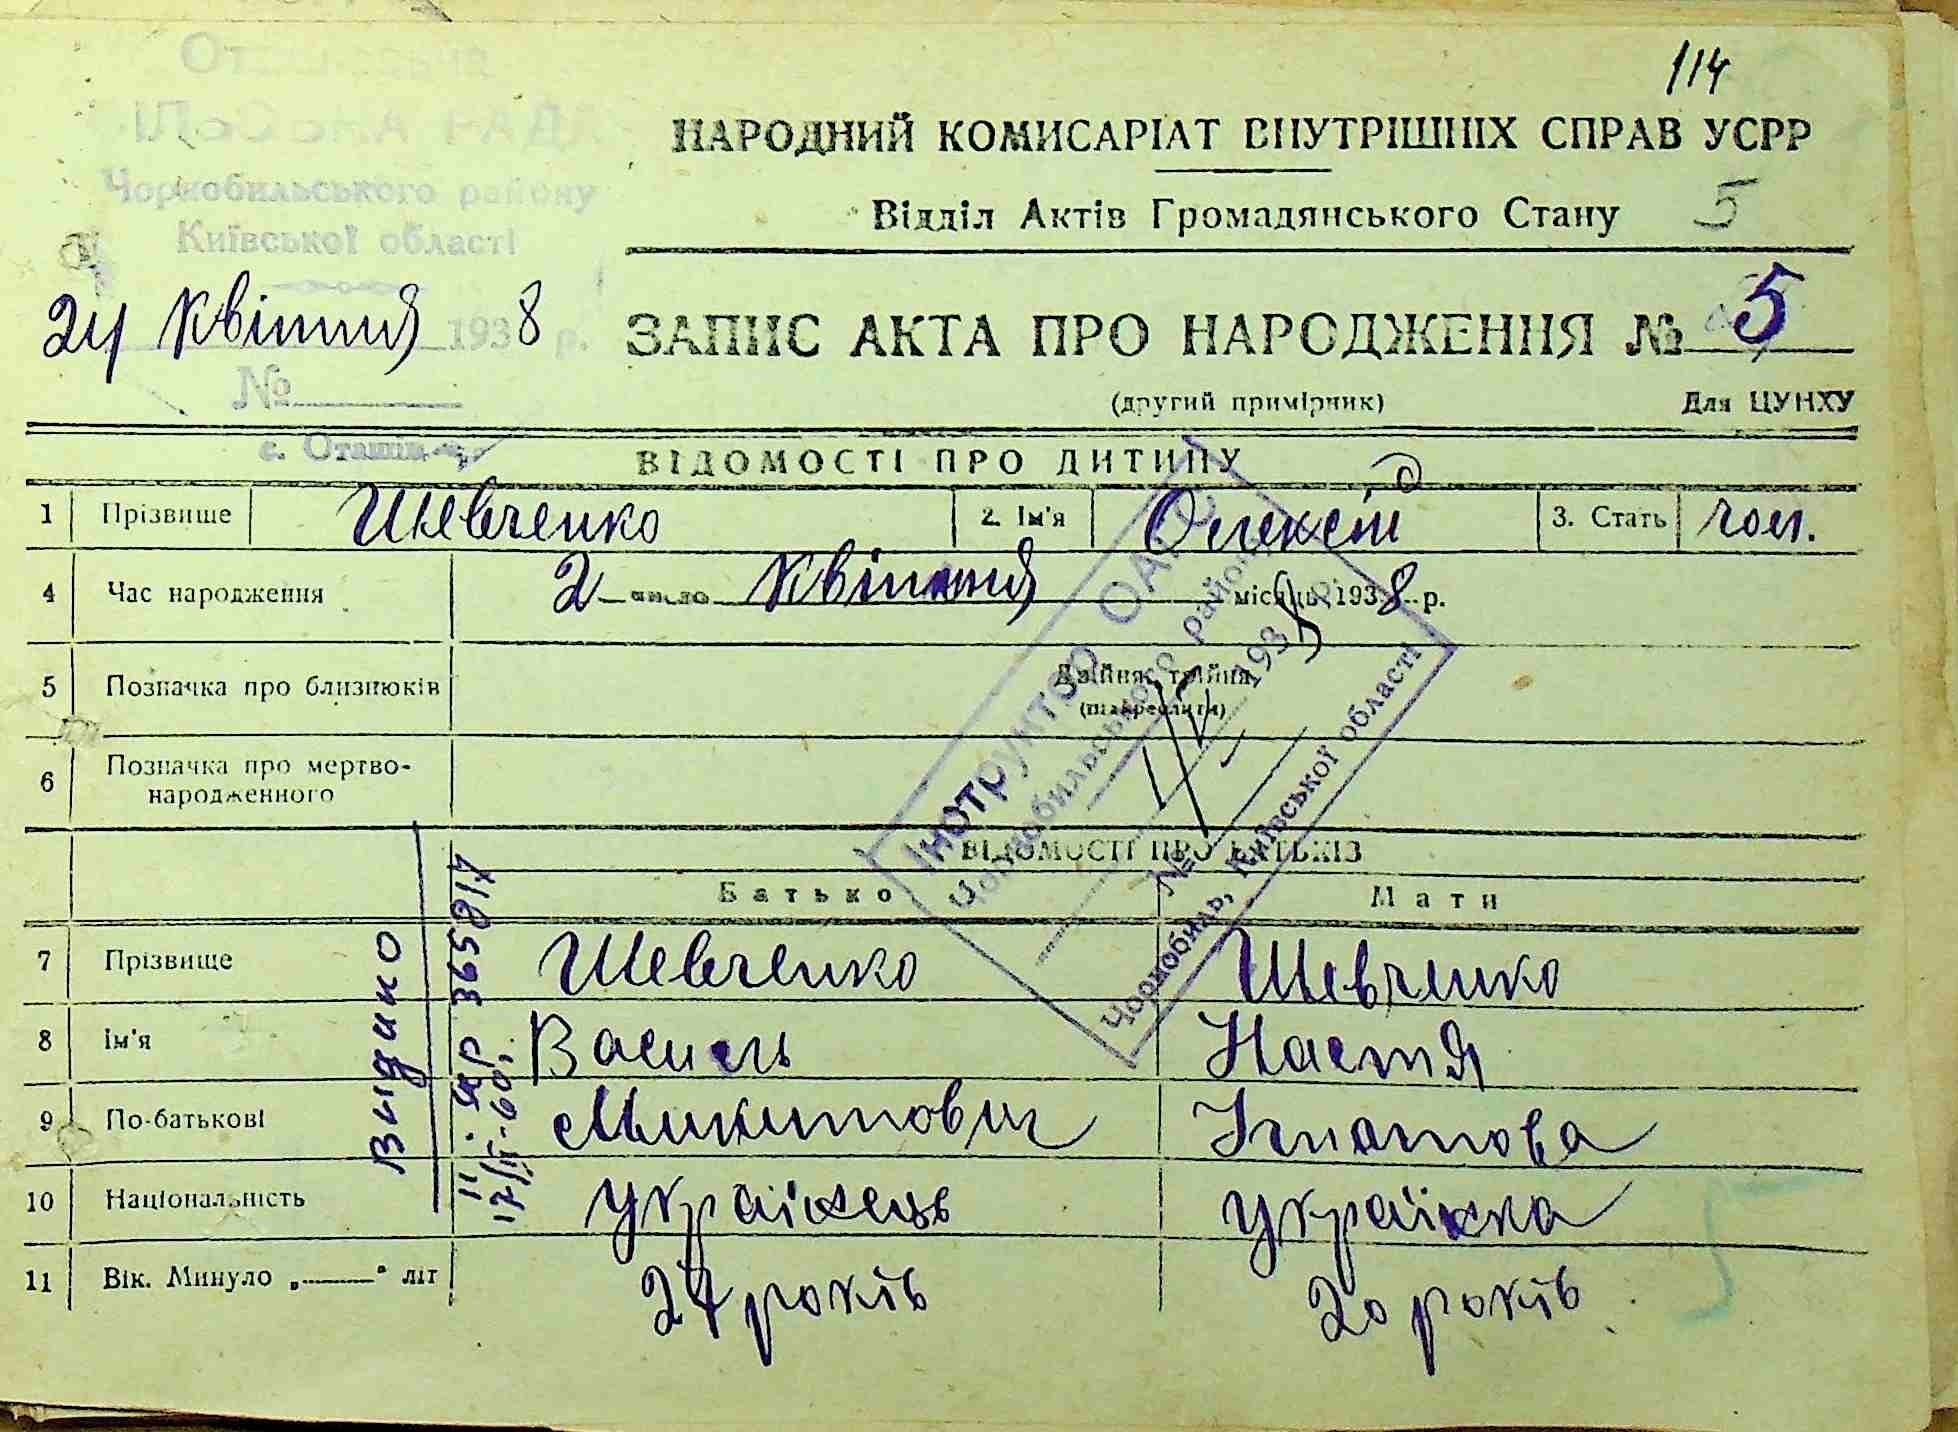 114
НАРОДНИЙ КОМИСАРІАТ ВНУТРІШНІХ СПРАВ УСРР
Відділ Актів Громадянського Стану 5
СІЛЬСЬКА РАДА
Чорнобильського району
Київської області
24 квітня 1938 р.
№
с. Оташів
ЗАПИС АКТА ПРО НАРОДЖЕННЯ № 5
(другий примірник) Для ЦУНХУ
ВІДОМОСТІ ПРО ДИТИНУ
1 Прізвище Шевченко 2. Ім'я Олексій 3. Стать чол.
4 Час народження 2 число квітня місяць 1938 р.
5 Позначка про близнюків Двійня, трійня
(підкреслити)
6 Позначка про мертво-
народженного
Інструктор ОАГС
Чорнобильського району
193
№
Чорнобиль, Київської області
ВІДОМОСТІ ПРО БАТЬКІВ
Батько Мати
7 Прізвище Шевченко Шевченко
8 Ім'я Василь Настя
9 По-батькові Микитович Ігнатова
10 Національність українець українка
11 Вік. Минуло „——" літ 24 років 20 років
Видано
17/II-60.